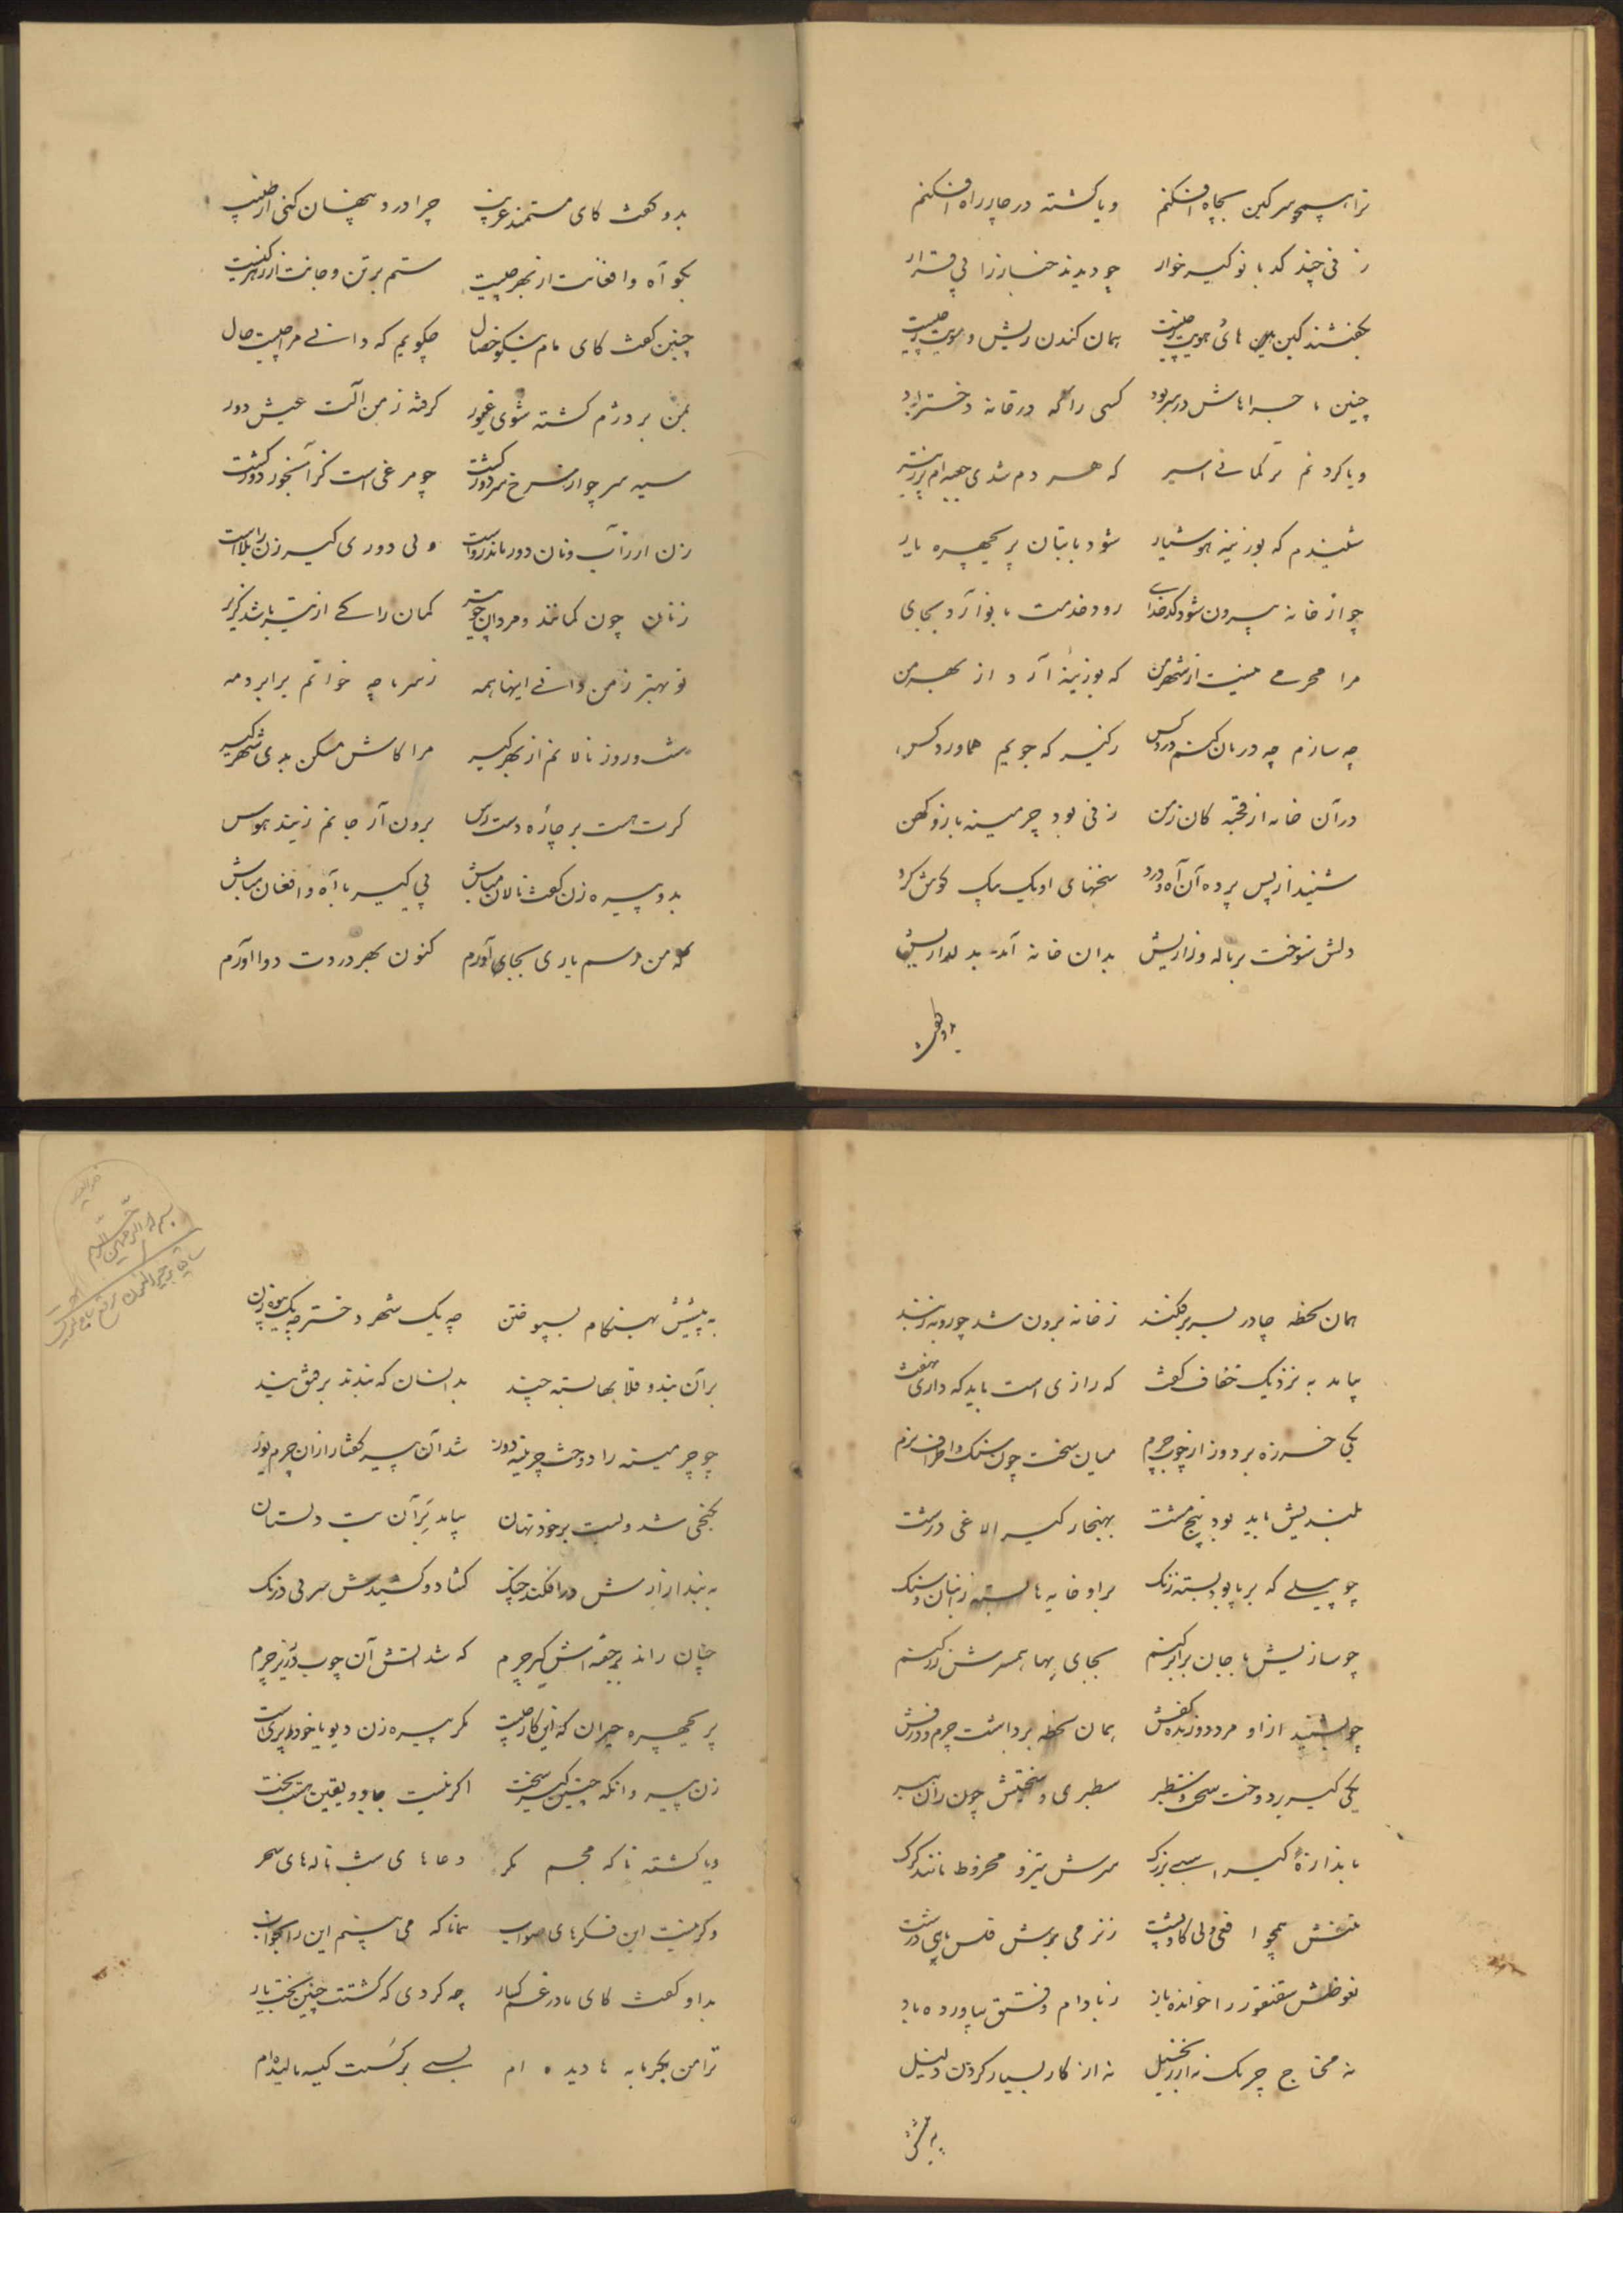 ترا همچو سرکین بچاه افکنم ویا کشته در چارراه افکنم
زنی چند کدبانو کیسرخوار چو دیدند خنبارزا بی قرار
بکفتند کین های هویت ز چیست همان کندن ریش و مویت ز چیست
چنین باش در سر بود کسی را که در خانه دختر بود
ویا کردنم ترکمانی اسیر که هر دم شدی
شنیدم که بوزینهٔ هوشیار شود با بتان پریچهره یار
چو از خانه بیرون شود کدخدای رود خدمت بانو آرد بجای
مرا محرمی نیست از شهر من که بوزینهٔ آرد از بهر من
چه سازم چه درمان کنم درد کس ز کیر که جویم هماورد کس
در آن خانه از قحبه کان زمن زنی بود چرمینه باز و کهن
شنید از پس پرده آن آه و درد سخنهای او یک بیک کوش کرد
دلش سوخت بر ناله و زاریش بدان خانه آمد بدلداریش
بدو کفت
بدو کفت کای مستمند غریب چرا درد پنهان کنی از طبیب
بکو آه و افغانت از بهر چیست ستم بر تن و جانت از زهر کیست
چنین کفت کای مام نیکو خصال چکویم که دانی مرا چیست حال
بمن بر دژم کشته شوی غیور کرفته ز من آلت عیش دور
سیه سر چو از سرخ سر دور کشت چو مرغی است کز آبخور دور کشت
زن ار ز آب و نان دور ماند رواست ولی دوری کیر زن را بلاست
زنان چون کمانند و مردان چو تیر کمان را کی از تیر باشد کزیر
تو بهتر ز من دانی اینها همه ز سر تا چه خوانم برابر دمه
شب و روز نالانم از بهر کیر مرا کاش مسکن بدی شهر کیر
کرت هست بر چاره دست رس برون آر جانم ز بند هوس
بدو پیره زن کفت نالان مباش پی کیر با آه و افغان مباش
که من رسم یاری بجای آورم کنون بهر دردت دوا آورم
همان لحظه چادر بسر بر فکند ز خانه برون شد چو روبه ز بند
بیامد به نزدیک خفاف کفت که رازی است باید که داری نهفت
یکی خرزه بر دوز از چوب و چرم میان سخت چون سنک و اطراف نرم
بلندیش باید بود پنج مشت بهنجار کیر الاغی درشت
چو پیلی که بر پا بود بسته زنک بر او خایه ها بسته ز انبان و سنک
چو سازیش با جان برابر کنم بجای بها همسرش زر کنم
چو بشنید از او مرد دوزنده کفش همان لحظه برداشت چرم و درفش
یکی کیر بردوخت سخت و سطبر سطبری و سختیش چون ران ببر
باندازهٔ کیر اسبی بزرک سرش تیز و مخروط مانند کرک
تنش همچو افعی ولی کاو پشت ز نرمی برش فلس ماهی درشت
نغوظش سقنقور را خوانده باز ز بادام و فستق بیاورده باد
نه محتاج چربک نه از زنجبیل نه از کار بسیار کردن ذلیل
به پیش
به پیشش بهنکام بسپوختن چه یک شهر دختر چه یک بیوه زن
بر آن بند و قلابها بسته چند بدانسان که بندند بر فتق بند
چو چرمینه را دوخت چرمینه دوز شد آن پیر کفتار از آن چرم یوز
بکنجی شد و بست بر خود نهان بیامد بر آن بت دلستان
به بند ازارش در افکند چنک کشاد و کشیدش سر بی درنک
چنان راند بر حقه اش کیر چرم که شد آتش آن چوب در زیر چرم
پریچهره حیران که این کار چیست مکر پیره زن دیو یا خود پری است
زن پیر وانکه چنین کیر سخت اکر نیست جادو یقین هست بخت
ویا کشته ناکه مجسم مکر دعاهای شب ناله های سحر
وکر نیست این فکرهای صواب همانا که می بینم این را بخواب
بدو کفت کای مادر غمکسار چه کردی که کشتت چنین بخت یار
ترا من بکرمابه ها دیده ام بسی بر کست کیسه مالیده ام
بسم الله الرحمن الرحیم